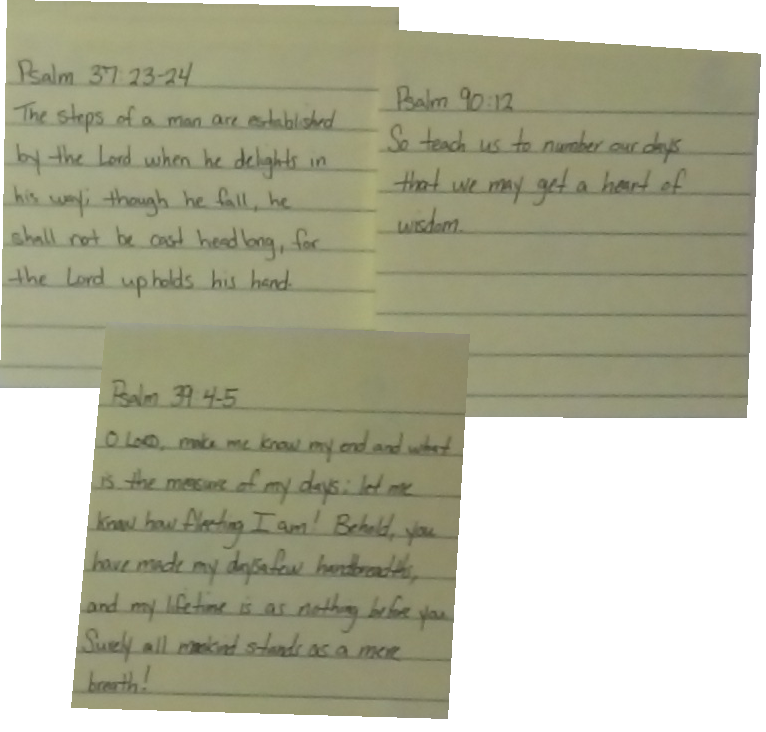 Psalm 37:23-24
The steps of a man are established
by the Lord when he delights in
his way; though he fall, he
shall not be cast headlong, for
the Lord upholds his hand.
Psalm 90:12
So teach us to number our days
that we may get a heart of
wisdom.
Psalm 39:4-5
O LORD, make me know my end and what
is the measure of my days; let me
know how fleeting I am! Behold, you
have made my days a few handbreadths,
and my lifetime is as nothing before you
Surely all mankind stands as a mere
breath!